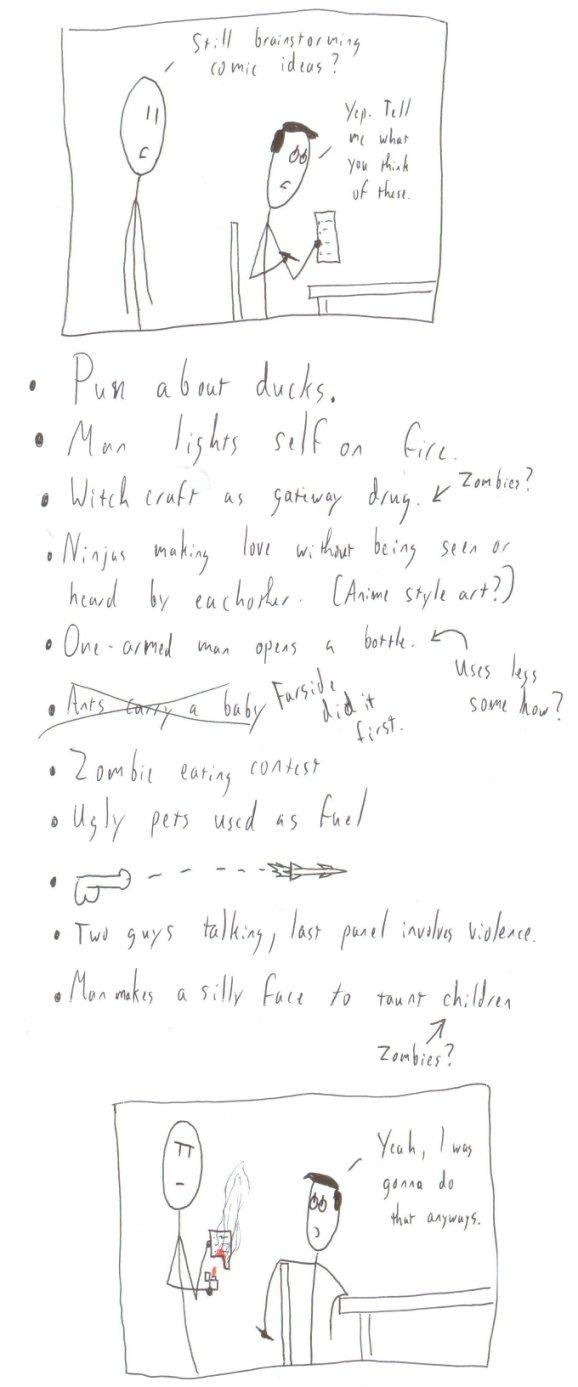 Still brainstorming
comic ideas?
Yep. Tell
me what
you think
of these.
• Pun about ducks.
• Man lights self on fire.
• Witch craft as gateway drug. Zombies?
• Ninjas making love without being seen or
heard by eachother. (Anime style art?)
• One-armed man opens a bottle.
Uses legs
some how?
• Ants carry a baby
Farside
did it
first.
• Zombie eating contest
• Ugly pets used as fuel
•
• Two guys talking, last panel involves violence.
• Man makes a silly face to taunt children
Zombies?
Yeah, I was
gonna do
that anyways.